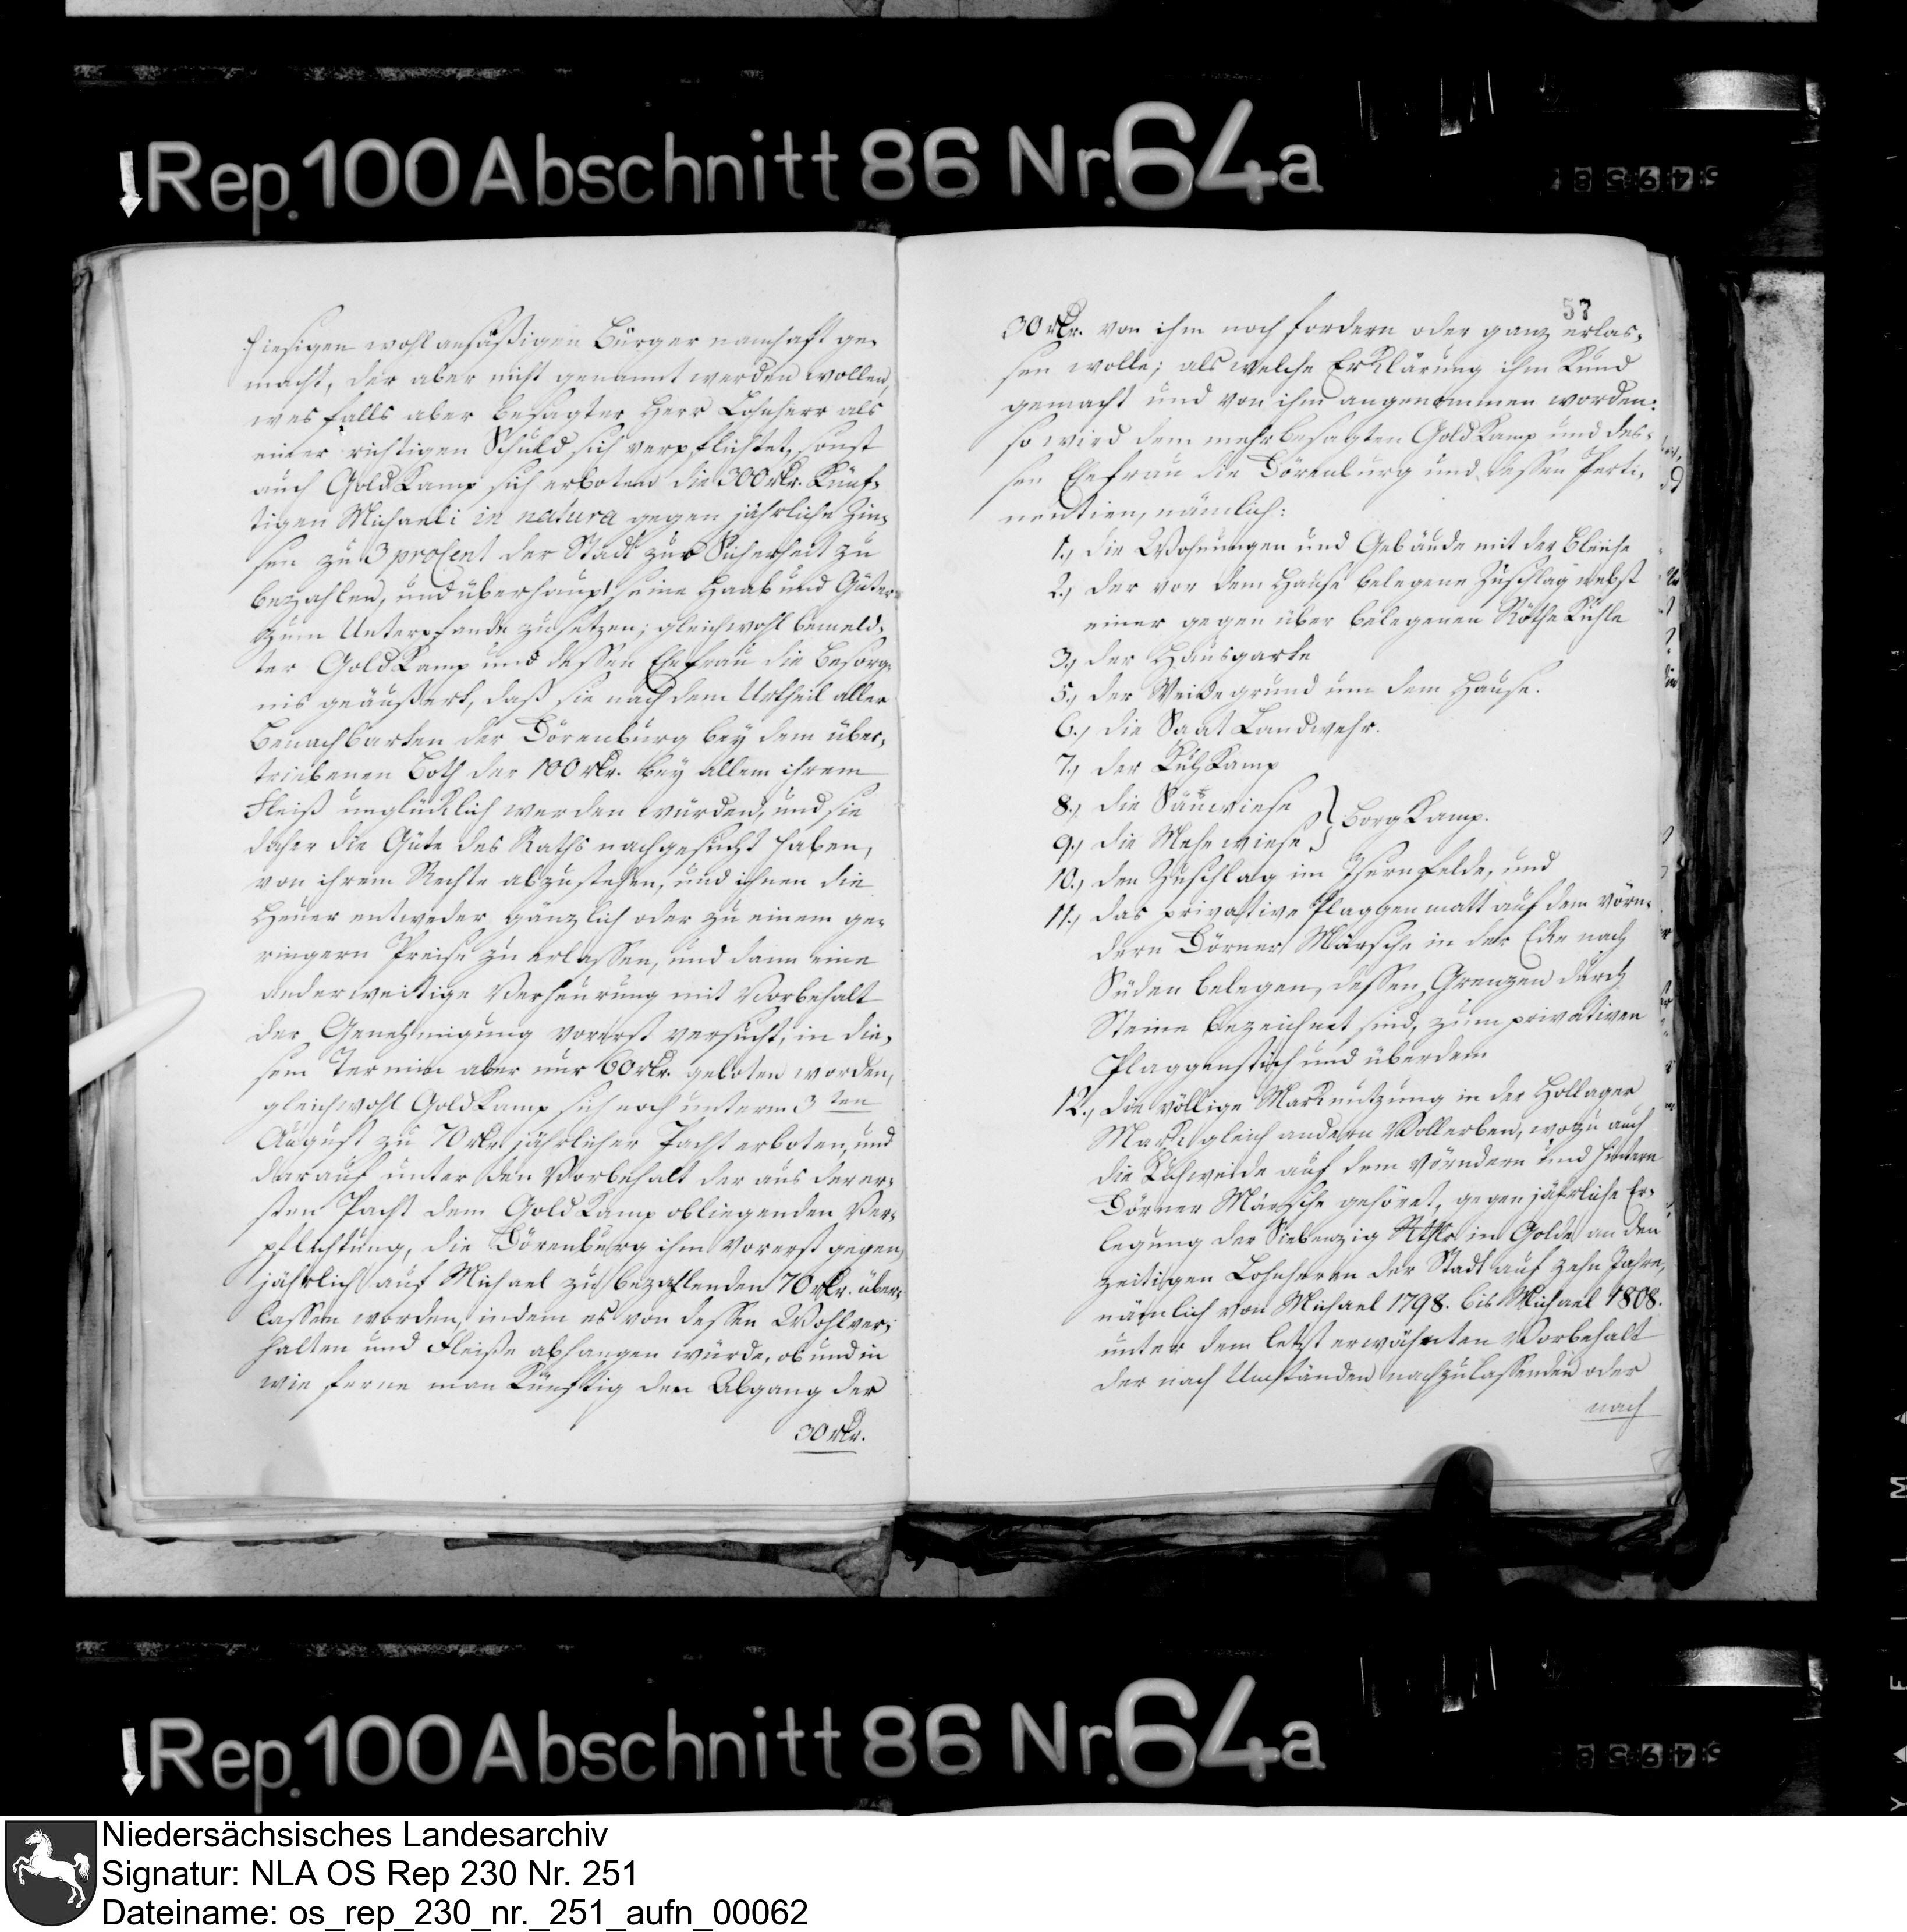 Rep. 100 Abschnitt 86 Nr. 64a
hiesigen wohl ansäßigen Bürger namhaft ge-
macht, der aber nicht genannt werden wollen,
wesfalls aber besagter Herr Lohnherr als
einer richtigen Schuld sich verpflichtet, sonst
auch GoldKamp sich erboten die 300 rtlr. Künf-
tigen Michaeli in natura gegen jährliche Zin-
sen zu 3 proCent der Stadt zur Sicherheit zu
bezahlen, und überhaupt seine Haab und Güter
zum Unterpfande zu setzen; gleichwohl bemeld-
ter GoldKamp und dessen Ehefrau die Besorg-
nis geäußert, daß sie nach dem Urtheil aller
Benachbarten der Dörenburg bey dem über-
triebenen Both der 100 rtlr. bey allem ihrem
Fleiß unglücklich werden würden, und sie
daher die Güte des Raths nachgesucht haben,
von ihrem Rechte abzustehen, und ihnen die
Heuer entweder gänzlich oder zu einem ge-
ringern Preise zu erlassen, und dann eine
anderweitige Verheurung mit Vorbehalt
der Genehmigung vorerst versucht, in die-
sem Termin aber nur 60 rtlr. geboten worden,
gleichwohl GoldKamp sich noch unterm 3ten
August zu 70 rtlr. jährlicher Pacht erboten, und
darauf unter den Vorbehalt der aus der er-
sten Pacht dem GoldKamp obliegenden Ver-
pflichtung, die Dörenburg ihm vorerst gegen
jährlich auf Michael zu bezahlenden 70 rtlr. über-
lassen worden, indem es von dessen Wohlver-
halten und Fleiße abhangen würde, ob und in
wie ferne man Künftig den Abgang der
30 rtlr.
57
30 rtlr. von ihm noch fordern oder ganz erlas-
sen wolle; als welche ErKlärung ihm Kund
gemacht und von ihm angenommen worden:
so wird dem mehrbesagten GoldKamp und des-
sen Ehefrau die Dörenburg und dessen Perti-
nentien, nämlich:
1., die Wohnungen und Gebäude mit der Bleiche
2., der vor dem Hause belegene Zuschlag nebst
einer gegen über belegenen RötheKuhle
3., der Hausgarte
5., der Weidegrund um dem Hause.
6., die Saat Landwehr.
7., der KuhKamp
8., die Säuwiese
9., die Mehewiese } BorgKamp.
10., den Zuschlag im Isernfelde, und
11., das privative Plaggenmatt auf dem vörn-
dern Dörner Märsche in der Ecke nach
Süden belegen, dessen Grenzen durch
Steine bezeichnet sind, zum privativen
Plaggenstich und überdem
12., die völlige MarKnutzung in der Hollager
Mark gleich andern Vollerben, wozu auch
die Kuhweide auf dem vörndern und hintern
Dörner Märsche gehöret, gegen jährliche Er-
legung der Siebenzig Rthlr in Golde an den
zeitigen Lohnherrn der Stadt auf zehn Jahre,
nämlich von Michael 1798. bis Michael 1808.
unter dem letzt erwähnten Vorbehalt
der nach Umständen nachzulassenden oder
nach
Rep. 100 Abschnitt 86 Nr. 64a
Niedersächsisches Landesarchiv
Signatur: NLA OS Rep 230 Nr. 251
Dateiname: os_rep_230_nr._251_aufn_00062